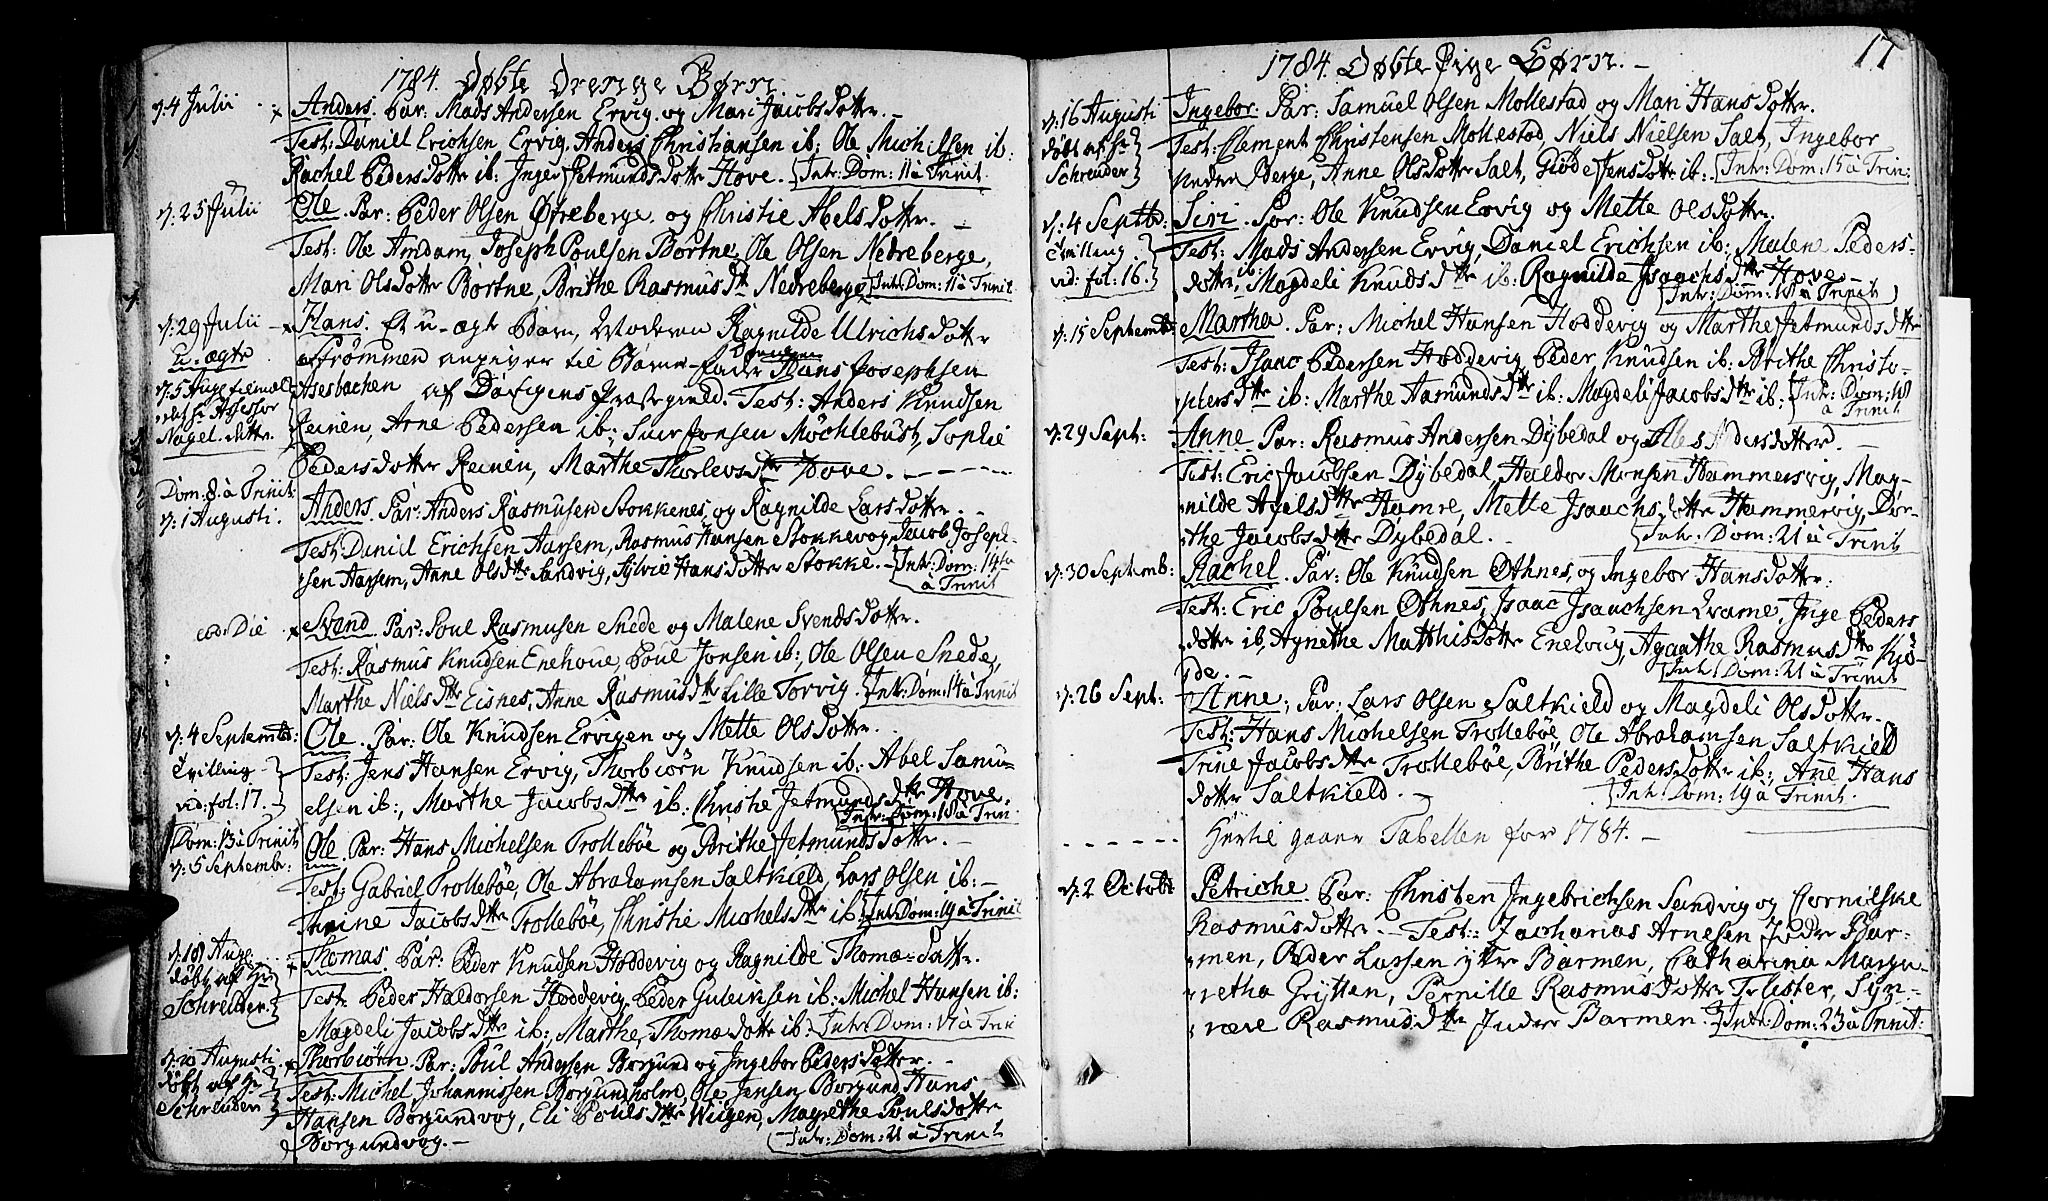 1784. Døbte Drenge Børn.
d: 4 Julii
Anders. Par: Mads Andersen Ervig og Mari Jacobsdottr.
Test: Daniel Erichsen Ervig, Anders Christiansen ib: Ole Michelsen ib:
Rachel Pedersdottr ib: Inger Jetmundsdottr Hove. Intr: Dom: 11 à Trinit.
d: 25 Julii
Ole. Par: Peder Olsen Øtreberge og Christie Abelsdottr.
Test: Ole Amdam, Joseph Poulsen Børtne, Ole Olsen Nedreberge,
Mari Olsdottr Børtne, Brithe Rasmusdtr Nedreberge Intr: Dom: 11 à Trinit.
d: 29 Julii
u-ægte
Hans. Et u-ægte Barn, Moderen Ragnilde Ulrichsdottr
Strømmen angiver til Barne-fader Hans Josephsen
d: 5 Aug:
Aasebachen af Davigens Præstegield. Test: Anders Knudsen
Nagel
Reinen, Arne Pedersen ib: Siur Jonsen Möchlebust, Sophie
Pedersdottr Reinen, Marthe Thorlevsdttr Hove.
Dom: 8 à Trinit:
d: 1 Augusti.
Anders. Par: Anders Rasmusen Stokkenes og Ragnilde Larsdottr.
Test: Daniel Erichsen Aarsem, Rasmus Hansen Stokkevog, Jacob Joseph-
sen Aarsem, Anne Olsdttr Sandvig, Sylvie Hansdottr Stokke. Intr: Dom: 14
à Trinit
eod: Die
Svend. Par: Poul Rasmusen Snede og Malene Svendsdottr.
Test: Rasmus Knudsen Enehoue, Poul Jonsen ib:, Ole Olsen Snede,
Marthe Nielsdtr Eisnes, Anne Rasmusdtr Lille Torvig. Intr: Dom: 14 à Trinit
d: 4 Septembr:
Tvilling
vid: fol: 17.
Ole. Par: Ole Knudsen Ervigen og Mette Olsdottr.
Test: Jens Hansen Ervig, Thorbiörn Knudsen ib: Abel Samu-
elsen ib:, Marthe Jacobsdttr ib: Christie Jetmundsdttr Hove.
Intr: Dom: 18 à Trin
Dom: 13 à Trinit
d: 5 Septembr:
Ole. Par: Hans Michelsen Trollebøe og Brithe Jetmundsdottr.
Test: Gabriel Trollebøe, Ole Abrahamsen Saltkield, Lars Olsen ib:
Thrine Jacobsdttr Trollebøe, Christie Michelsdttr ib: Intr: Dom: 19 à Trinit
d: 18 Aug:
døbt af Hr
Schreuder.
Thomas. Par: Peder Knudsen Hoddevig og Ragnilde Thomæ-dottr.
Test: Peder Haldorsen Hoddevig, Peder Guleiksen ib: Michel Hansen ib:
Magdeli Jacobsdttr ib:, Marthe Thomædottr ib: Intr: Dom: 17 à Trini
d: 20 Augusti
døbt af Hr
Schreuder
Thorbiörn. Par: Poul Andersen Borgund og Ingebor Pedersdottr.
Test: Michel Johannissen Borgundholm, Ole Jensen Borgund Hans
Hansen Borgundvog, Eli Poulsdttr Weigen, Magrethe Poulsdottr
Borgundvog.
Intr: Dom: 21 à Trinit
17
1784. Døbte Pige Börn.
d: 16 Augusti
døbt af Hr
Schreuder
Ingebor. Par: Samuel Olsen Mollestad og Mari Hansdottr.
Test: Clement Christensen Mollestad Niels Nielsen Salt, Ingebor
Nedre Berge, Anne Olsdottr Salt, Giøde Jensdottr ib: Intr: Dom: 15 à Trin:
d: 4 Septbr:
Tvilling
vid: fol: 16.
Siri. Par: Ole Knudsen Ervig og Mette Olsdottr.
Test: Mads Andersen Ervig, Daniel Erichsen ib: Malene Peders-
dottr ib Magdeli Knudsdttr ib: Ragnilde Isaachsdttr Hove.
Intr: Dom: 18 à Trinit
d: 15 Septembr:
Martha. Par: Michel Hansen Hoddevig og Marthe Jetmundsdttr
Test: Isaac Pedersen Hoddevig Peder Knudsen ib: Brithe Christo-
phersdttr ib: Marthe Aamundsdttr ib: Magdeli Jacobsdttr ib: Intr: Dom: 18
à Trinit
d: 29 Sept:
Anne Par: Rasmus Andersen Dybedal og
Test: Eric Jacobsen Dybedal, Haldor Monsen Hammersvig, Mag-
nilde Axelsdttr Hamre, Mette Isaachsdottr Hammervig, Dør-
the Jacobsdttr Dybedal.
Intr: Dom: 21 à Trinit
d: 30 Septemb:
Rachel. Par: Ole Knudsen Othnes, og Ingebor Hansdottr:
Test: Eric Poulsen Othnes, Isaac Isaachsen Qvame, Inge Peders
dottr ib, Agnethe Matthisdottr Enevog, Agaathe Rasmusdttr Kiö-
de.
Intr: Dom: 21 à Trinit
d: 26 Sept:
Anne; Par: Lars Olsen Saltkield og Magdeli Olsdottr.
Test: Hans Michelsen Trollebøe, Ole Abrahamsen Saltkield
Trine Jacobsdttr Trollebøe, Brithe Pedersdottr ib:, Anne Hans
dottr Saltkield.
Intr: Dom: 19 à Trinit.
Hertil gaaer Tabellen for 1784.
d: 2 Octobr
Petriche. Par: Christen Ingebrichsen Sandvig og Cornilske
Rasmusdottr. Test: Zacharias Arnesen Indre Bar-
men, Peder Lassen yttre Barmen, Catharina Margre-
retha Grytten, Pernille Rasmusdottr Felister, Syn-
neve Rasmusdttr Indre Barmen. Intr: Dom: 23 à Trinit: